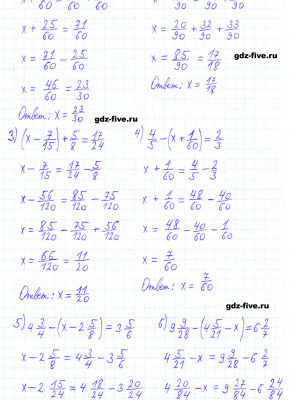 x + 25/60 = 71/60
x = 71/60 - 25/60
x = 46/60 = 23/30
Ответ: x = 23/30
x = 20/90 + 32/90 + 33/90
x = 85/90 = 17/18
Ответ: x = 17/18
gdz-five.ru
gdz-five.ru
3) (x - 7/15) + 5/8 = 17/24
x - 7/15 = 17/24 - 5/8
x - 56/120 = 85/120 - 75/120
x = 85/120 - 75/120 + 56/120
x = 66/120 = 11/20
Ответ: x = 11/20
4) 4/5 - (x + 1/60) = 2/3
x + 1/60 = 4/5 - 2/3
x + 1/60 = 48/60 - 40/60
x = 48/60 - 40/60 - 1/60
x = 7/60
Ответ: x = 7/60
gdz-five.ru
5) 4 3/4 - (x - 2 5/8) = 3 5/6
x - 2 5/8 = 4 3/4 - 3 5/6
x - 2 15/24 = 4 18/24 - 3 20/24
6) 9 9/28 - (4 5/21 - x) = 6 2/7
4 5/21 - x = 9 9/28 - 6 2/7
4 20/84 - x = 9 27/84 - 6 24/84